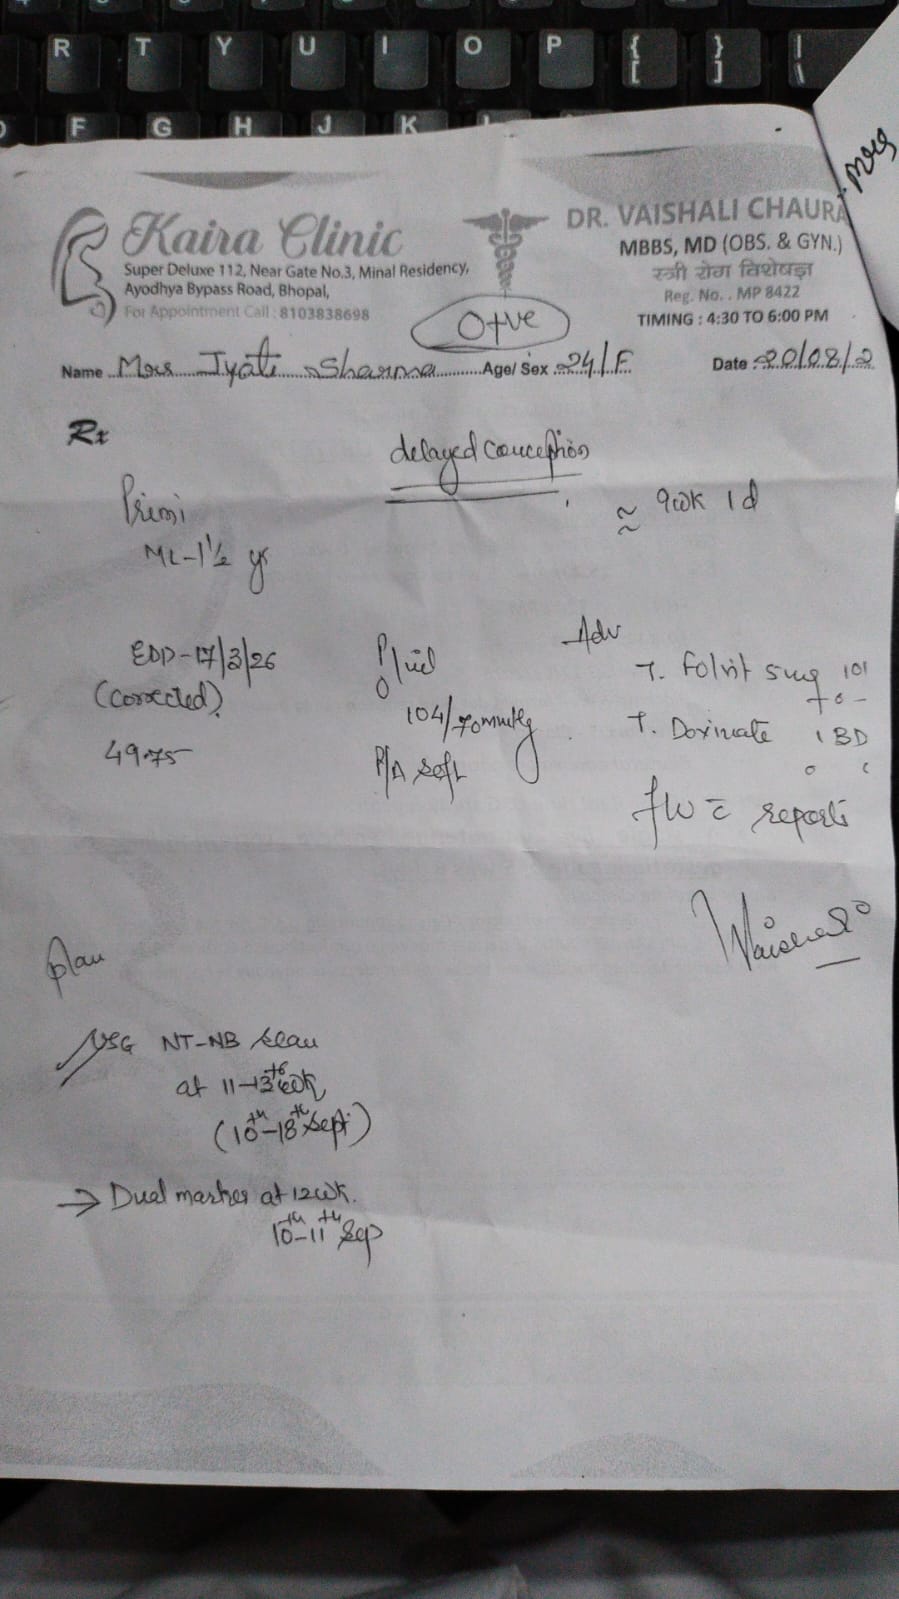 Kaira Clinic
Super Deluxe 112, Near Gate No.3, Minal Residency,
Ayodhya Bypass Road, Bhopal,
For Appointment Call : 8103838698
DR. VAISHALI CHAURA
MBBS, MD (OBS. & GYN.)
स्त्री रोग विशेषज्ञ
Reg. No. . MP 8422
TIMING : 4:30 TO 6:00 PM
O+ve
Name Mrs Jyoti Sharma Age/ Sex 24/F Date 20/08/2
Rx
delayed conception
Primi
≈ 9wk 1d
ML-1½ yr
EDD-17/3/26
(corrected)
49.75
104/70mmHg
P/A soft
Adv
T. Folvit 5mg
T. Doxinate 1 BD
reports
Vaishali
plan
USG NT-NB scan
at 11-13+6wk
(10th-18th Sept)
→ Dual marker at 12wk.
10th-11th Sep
R T Y U I O P { [ } ] | \
F G H J K